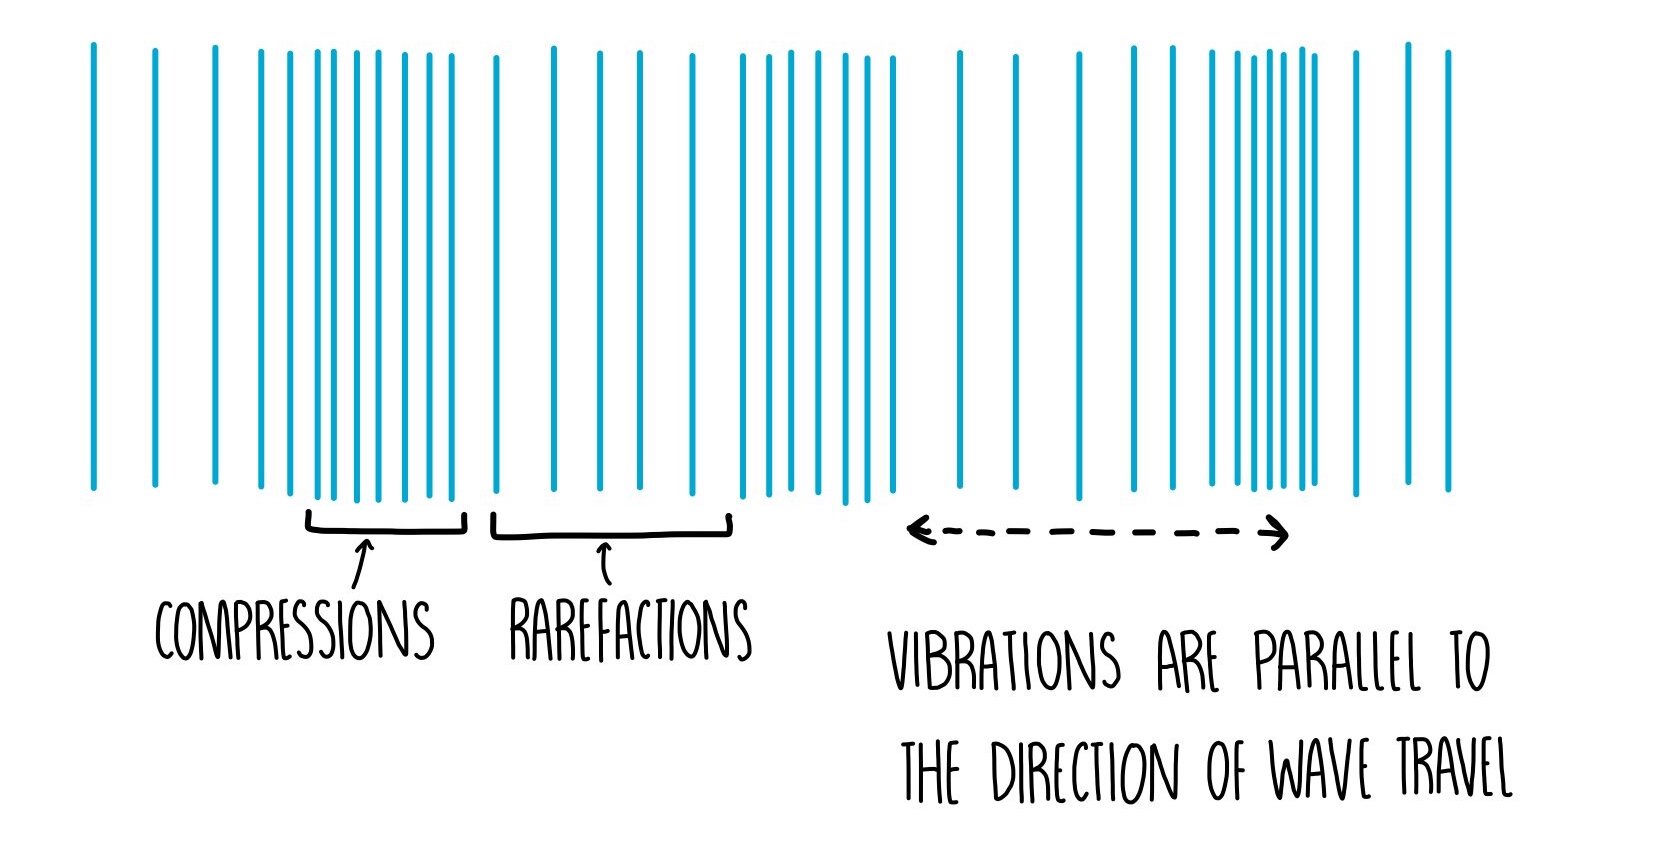 COMPRESSIONS
RAREFACTIONS
VIBRATIONS ARE PARALLEL TO
THE DIRECTION OF WAVE TRAVEL